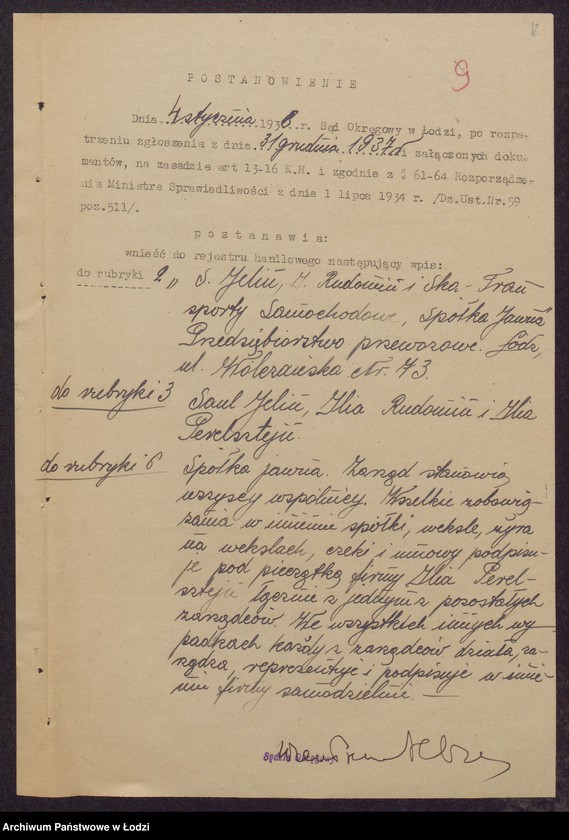 12
9
POSTANOWIENIE
Dnia 4 stycznia 1938 r. Sąd Okręgowy w Łodzi, po rozpa-
trzeniu zgłoszenia z dnia 31 grudnia 1937 r i załączonych doku-
mentów, na zasadzie art 13-16 K.H. i zgodnie z § 61-64 Rozporządze-
nia Ministra Sprawiedliwości z dnia 1 lipca 1934 r. /Dz.Ust.Nr.59
poz.511/.
postanawia:
wnieść do rejestru handlowego następujący wpis:
do rubryki 2 „ S. Jelin, I. Rudomin i Ska - Tran
sporty Samochodowe, Spółka Jawna"
Przedsiębiorstwo przewozowe. Łódź,
ul. Wólczańska Nr. 43.
do rubryki 3 Saul Jelin, Ilia Rudomin i Ilia
Perelsztejn.
do rubryki 6 Spółka jawna. Zarząd stanowią
wszyscy wspólnicy. Wszelkie zobowią-
zania w imieniu spółki, weksle, żyra
na wekslach, czeki i umowy podpisu-
je pod pieczątką firmy Ilia Perel-
sztejn łącznie z jednym z pozostałych
zarządców. We wszystkich innych wy
padkach każdy z zarządców działa, za-
rządza, reprezentuje i podpisuje w imie-
niu firmy samodzielnie. —
Archiwum Państwowe w Łodzi